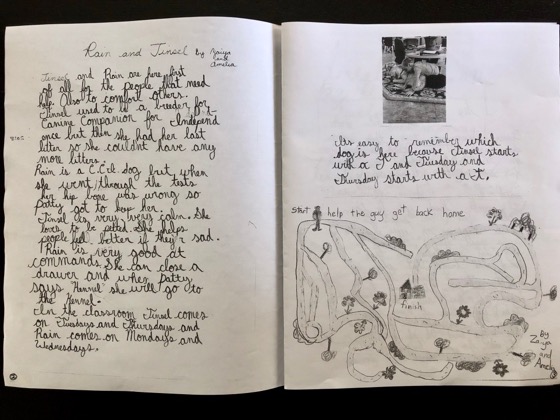 Rain and Tinsel by Zaiya
and
Amelia
Tinsel and Rain are here first
of all for the people that need
help. Also to comfort others.
Tinsel used to be a breeder for
Canine Companion for Independ
ence but then she had her last
litter so she couldn't have any
more litters.
Rain is a C.C.I. dog but when
she went through the tests
her hip bone was wrong so
Patty got to keep her.
Tinsel is very very calm. She
loves to be petted. She helps
people feel better if they'r sad.
Rain is very good at
commands. She can close a
drawer and when Patty
says "Kennel" she will go to
the Kennel.
In the classroom Tinsel comes
on Tuesdays and Thursdays and
Rain comes on Mondays and
Wednesdays.
Its easy to remember which
dog is here because Tinsel starts
with a T and Tuesday and
Thursday starts with a T.
Start help the guy get back home
finish
By
Zaiya
and
Amelia